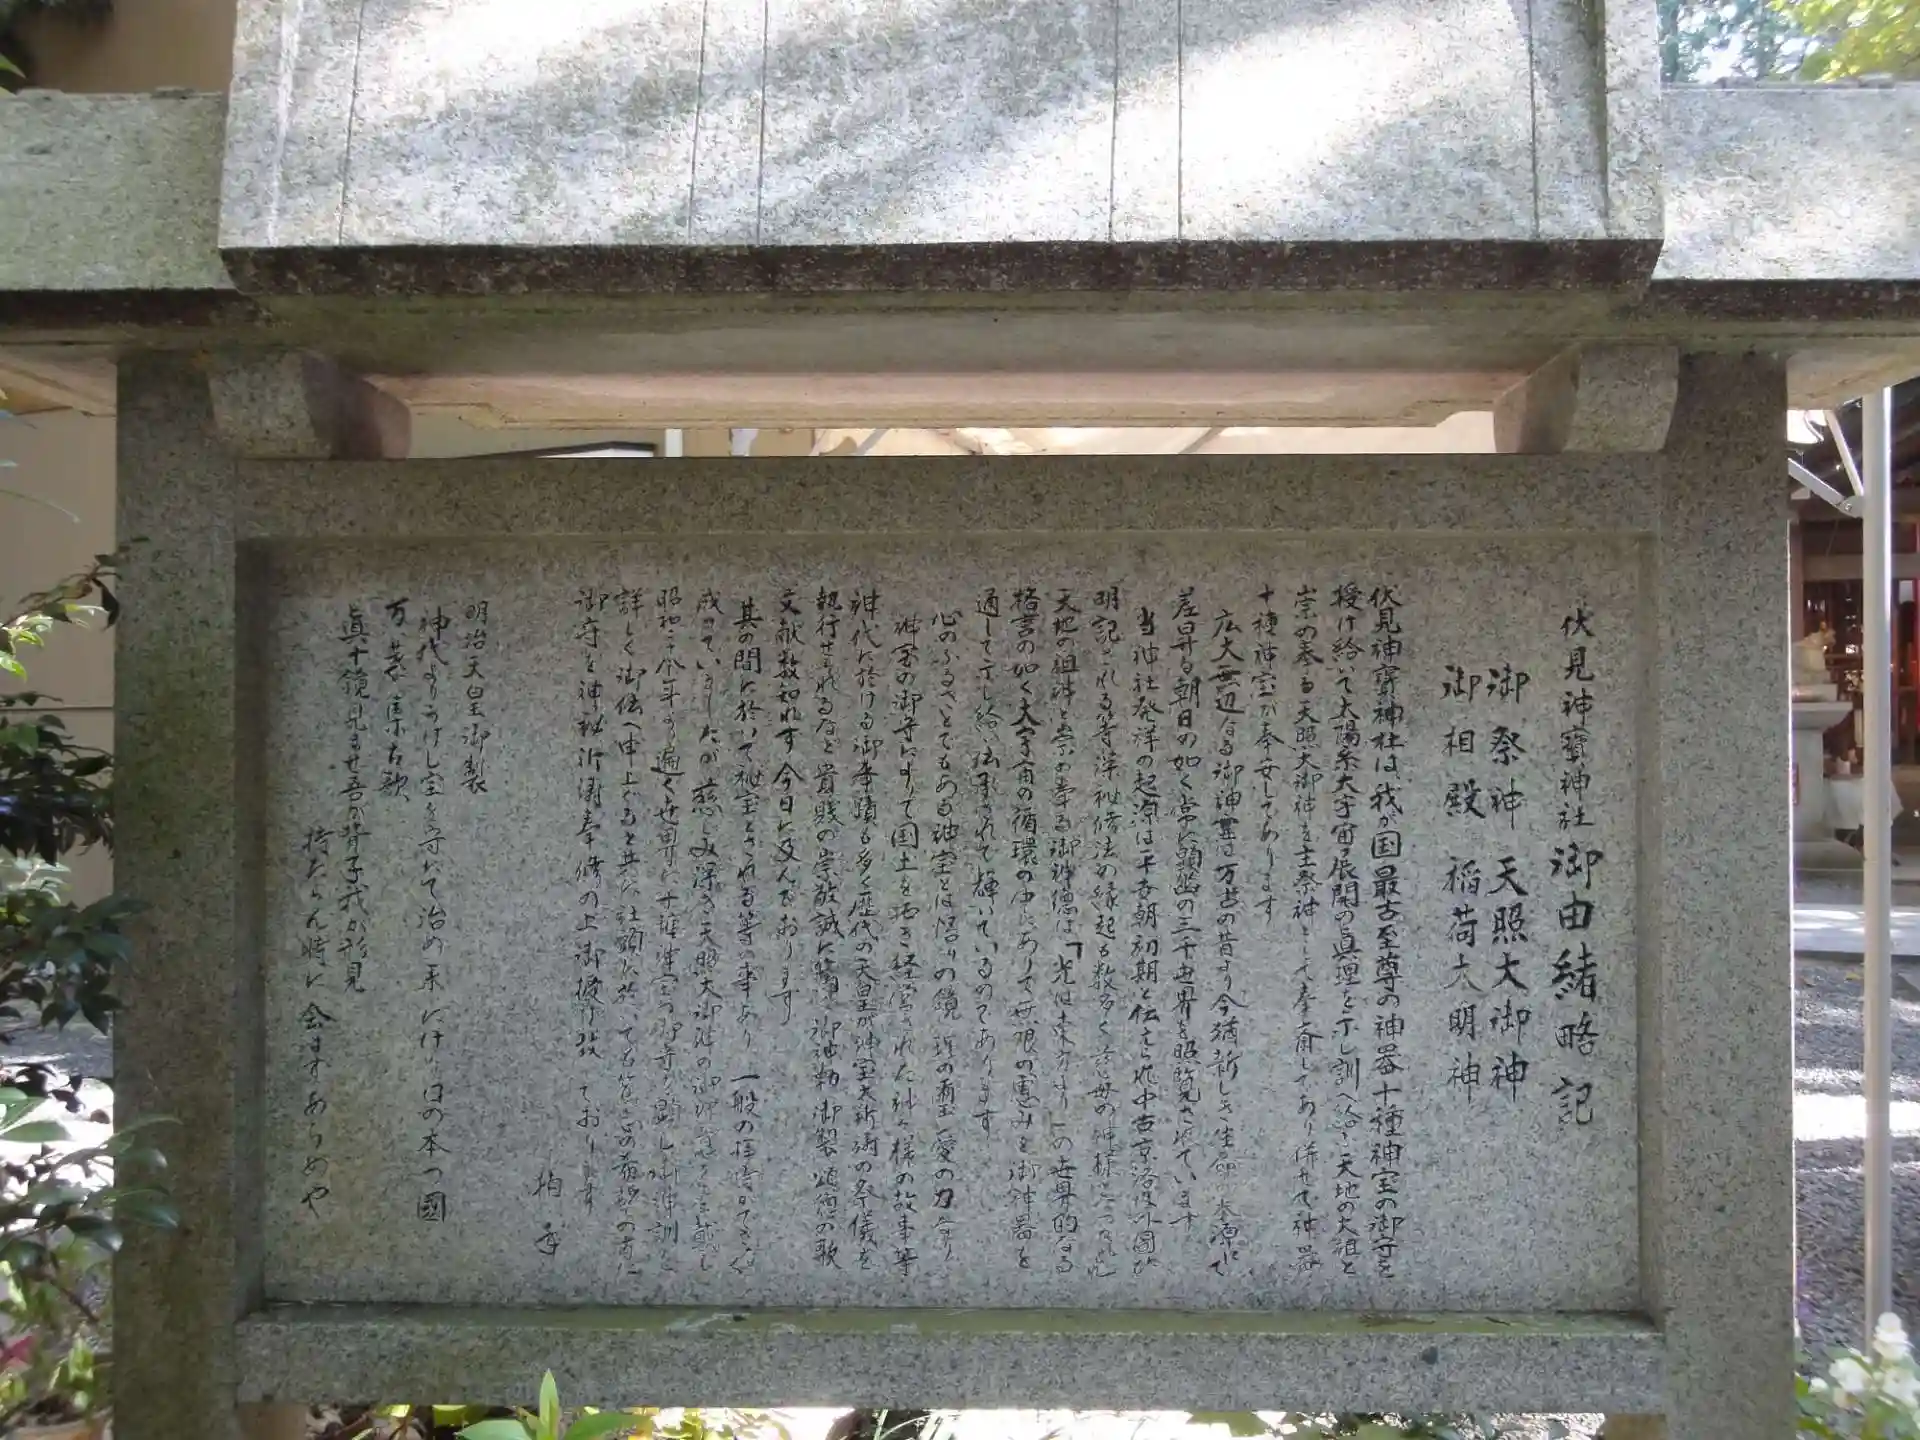 伏見神寶神社御由緒略記
御祭神 天照大御神
御相殿 稲荷大明神
伏見神寶神社は我が国最古至尊の神器十種神宝の御守を
授け給いて太陽系大宇宙の展開の真理を示し訓へ給う天地の大祖と
崇め奉る天照大御神を主祭神として奉斎してあり併せて神器
十種神宝が奉安してあります
広大無辺なる御神霊は万古の昔より今猶新しき生命の本源にて
差昇る朝日の如く常に顕幽の三千世界を照覧されています
当神社発祥の起源は平安朝初期と伝えられ中古京洛保外図に
明記される等深秘修法の縁起も数多く
天地の祖神と崇め奉る御神徳は「光は東方より」の世界的なる
格言の如く大宇宙の循環の中にありて無限の恵みを御神器を
通して示し給い伝承されて輝いているのであります
心のふるさとでもある神宝とは悟りの鏡 理の宝玉 愛の力なり
神宝の御守によりて国土を拓き経営された種々様の故事等
神代に於ける御事蹟も多く歴代の天皇が神宝大祈祷の祭儀を
執行せられるなど貴賤の崇敬誠に篤く御神勅 御製 頌徳の歌
文献数知れず今日に及んでおります
其の間に於いて秘宝とされる等の事あり 一般の拝持ができなく
成っていましたが慈しみ深き天照大御神の
昭和三十二年より遍く世界に十種神宝の御守を顕し御神訓を
詳しく御伝へ申上ぐると共に社頭に於いても
御守を神秘祈祷奉修の上御授け致しております
明治天皇御製
神代よりうけし宝を守にて治め来にけり日の本つ國
万葉集古歌
眞十鏡見ませ吾が背子我が形見
持たらん時に会はずあらめや